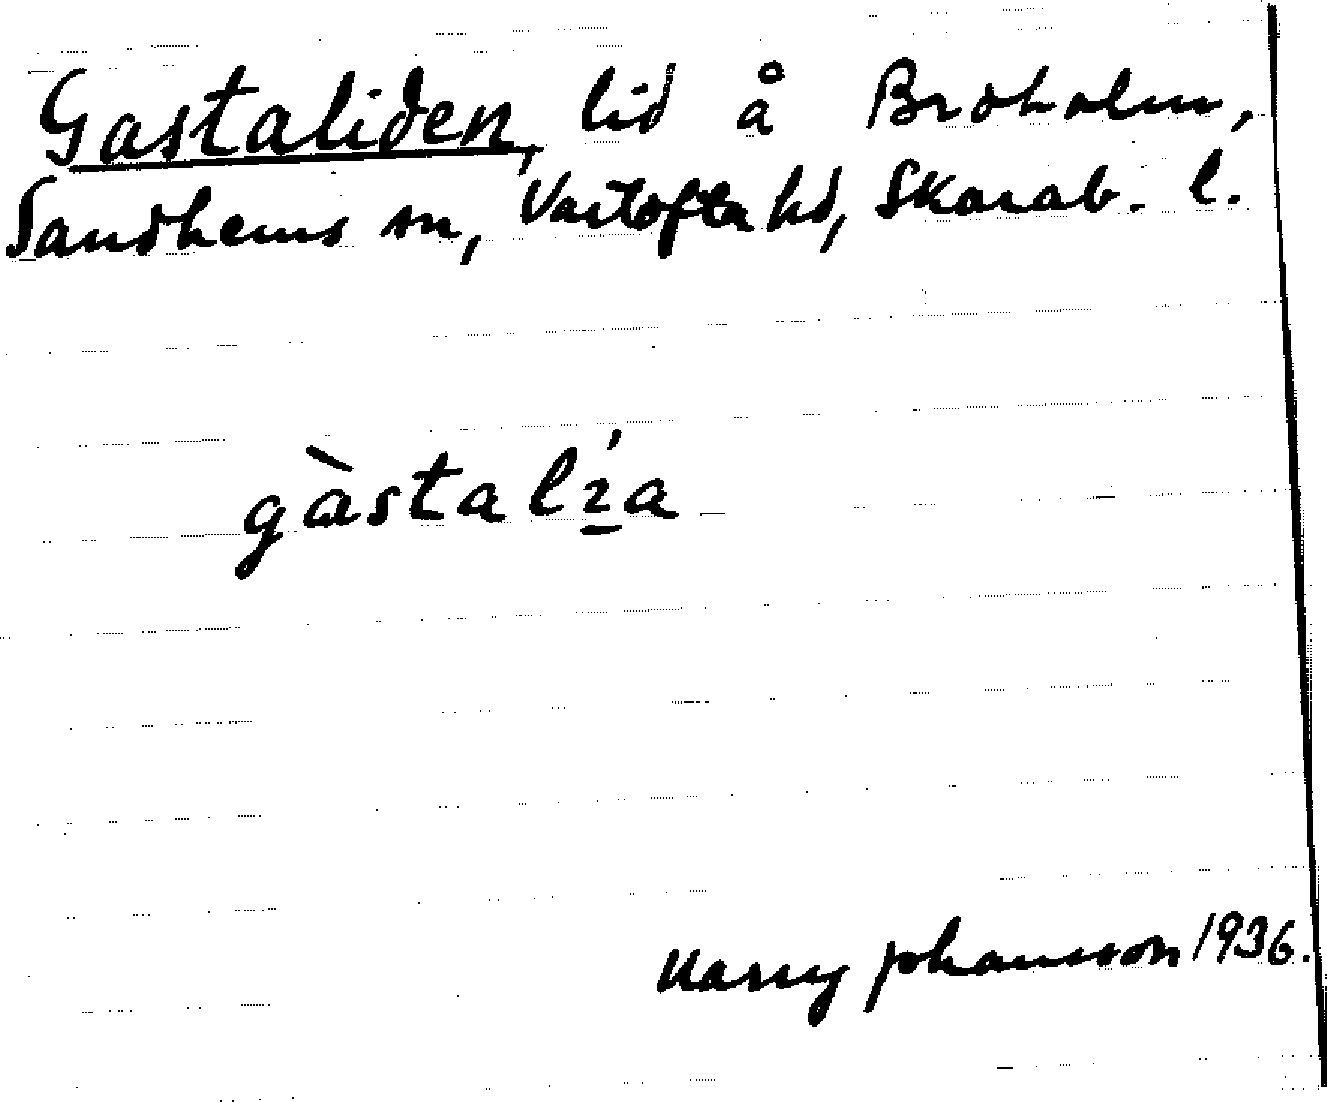 Gastaliden, lid å Broholm,
Sandhems sn, Vartofta hd, Skarab. l.
gàstalí̱a
Harry Johansson 1936.